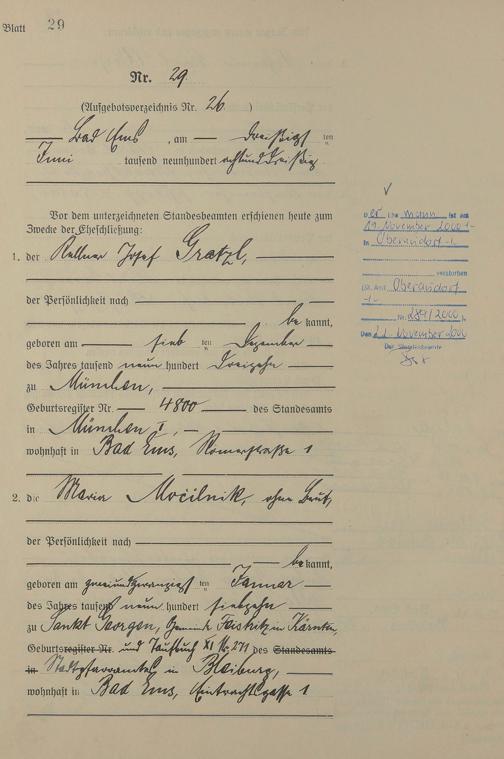 Blatt 29
Nr. 29.
(Aufgebotsverzeichnis Nr. 26)
Bad Ems, am dreißigsten
Juni tausend neunhundert achtunddreißig
Vor dem unterzeichneten Standesbeamten erschienen heute zum
Zwecke der Eheschließung:
1. der Kellner Josef Gratzl,
der Persönlichkeit nach
bekannt,
geboren am ten Dezember
des Jahres tausend neun hundert dreizehn
zu München,
Geburtsregister Nr. 4800 des Standesamts
in München I,
wohnhaft in Bad Ems, Römerstraße 1
2. die Maria Močilnik, ohne Beruf,
der Persönlichkeit nach
bekannt,
geboren am zweiundzwanzigsten Januar
des Jahres tausend neun hundert siebzehn
zu Sankt Georgen, Gemeinde Feistritz in Kärnten,
Geburtsregister Nr. und Taufbuch XI N. 271 des Standesamts
in Stadtpfarramtes in Bleiburg,
wohnhaft in Bad Ems, Eintrachtgasse 1
Der Ehemann ist am
November 2000
in Oberaudorf
verstorben
Oberaudorf
Nr. 289/2000
Den November 2000
Der Standesbeamte